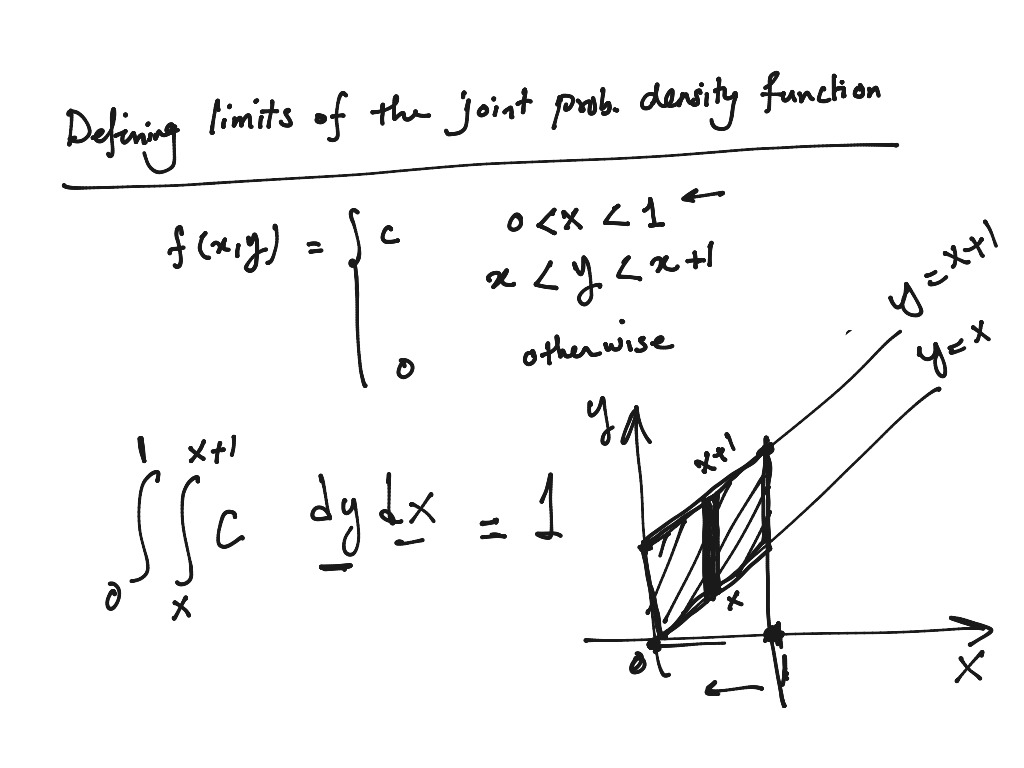 Defining limits of the joint prob. density function
f(x,y) = { c 0 < x < 1 ←
x < y < x+1
0 otherwise
y = x+1
y = x
y
x+1
∫₀¹ ∫ₓˣ⁺¹ c dy dx = 1
x
0
1
←
x